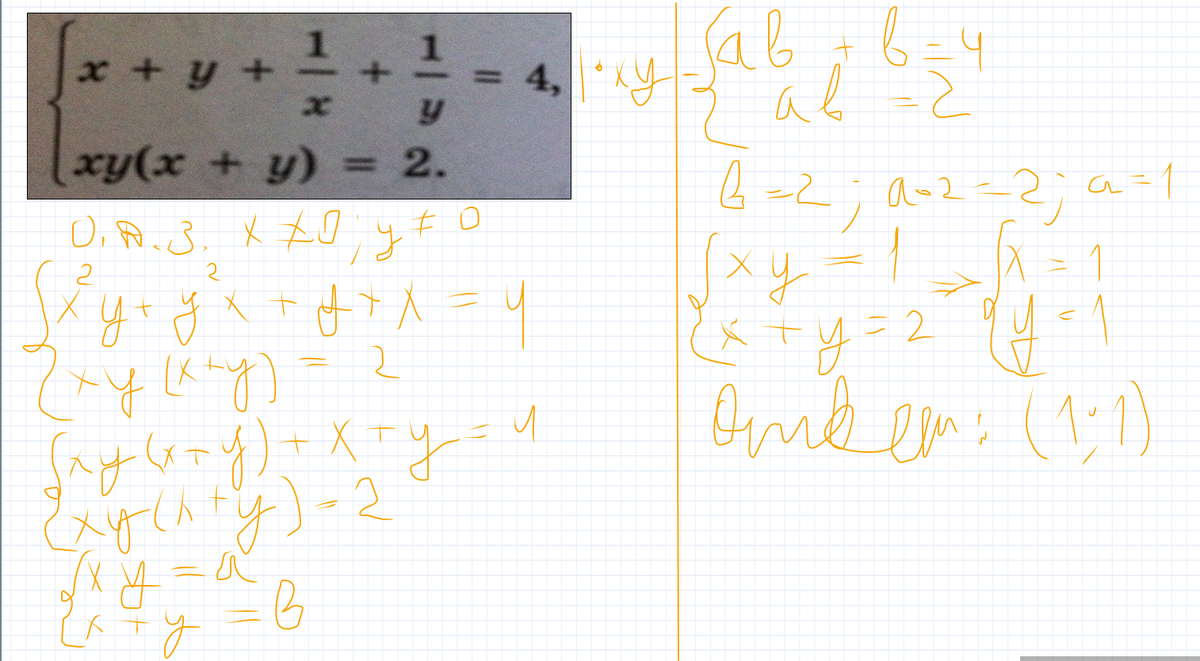 x + y + 1/x + 1/y = 4, | · xy
xy(x + y) = 2.
О.Д.З. x ≠ 0; y ≠ 0
x²y + y²x + y + x = 4
xy(x+y) = 2
xy(x+y) + x + y = 4
xy(x+y) = 2
xy = a
x + y = b
ab + b = 4
ab = 2
b = 2; a·2 = 2; a = 1
xy = 1 ⇒ x = 1
x + y = 2 y = 1
Ответ: (1;1)